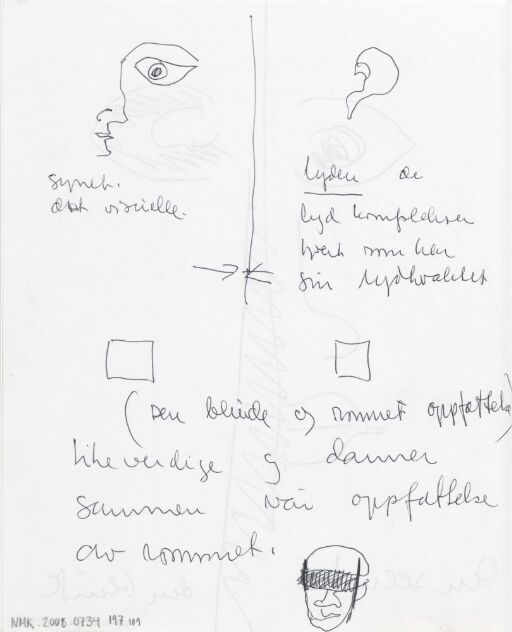 synet.
det visuelle.
lyden de
lyd komplekser
hvert rom har
sin lydkvalitet
(den blinde og rommet oppfattelse)
likeverdige og danner
sammen vår oppfattelse
av rommet.
den blinde
NMK.2008.0734.197 109